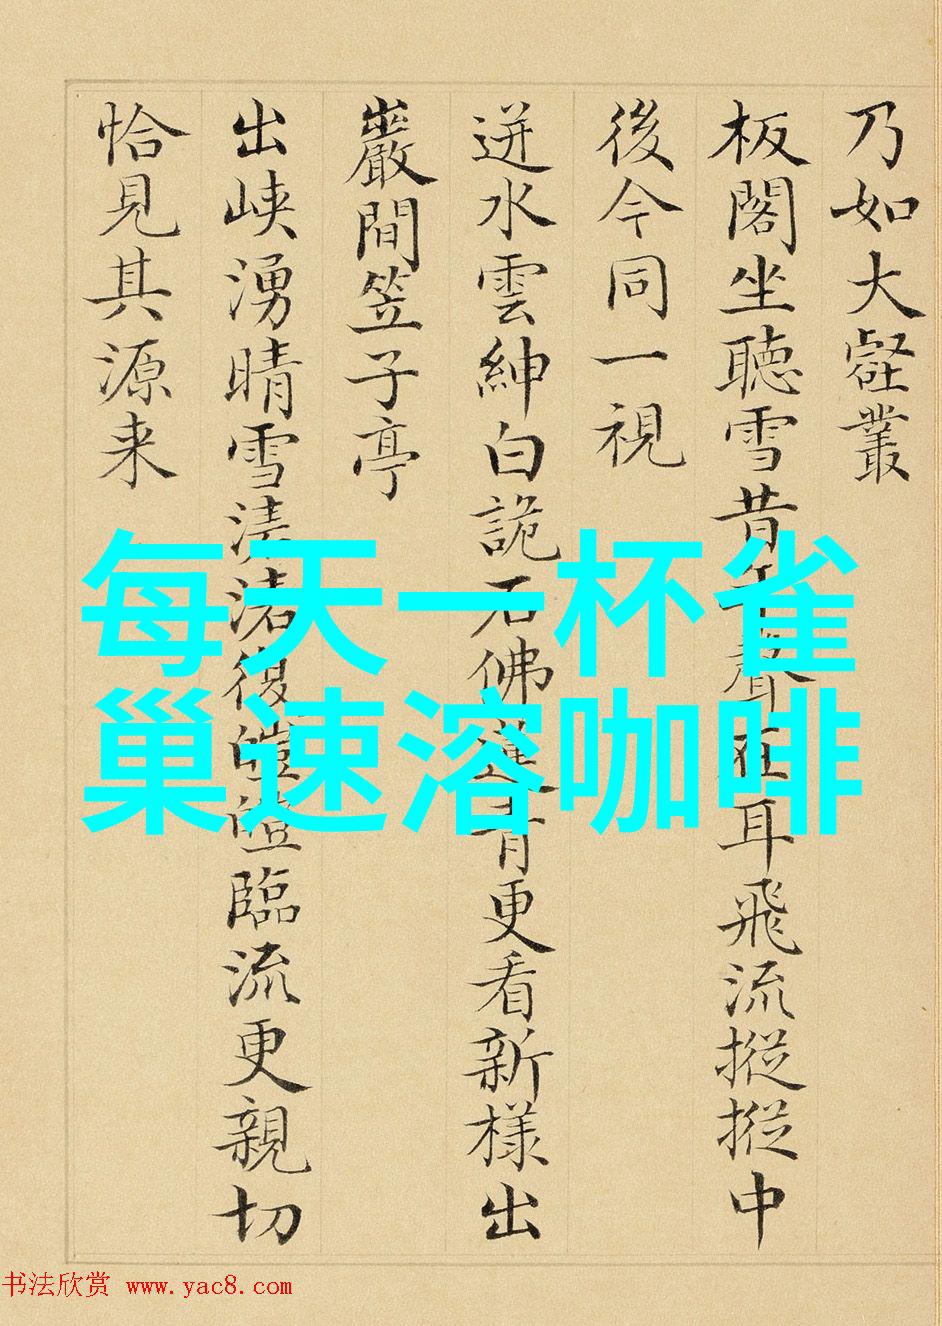 乃如大壑叢
板閣坐聽雪昔年聲在耳飛流摐摐中
後今同一視
迸水雲紳白詭石佛髻青更看新樣出
巖間笠子亭
出峽湧晴雪清渚復皚皚臨流更親切
恰見其源来
每天一杯雀
巢速溶咖啡
书法欣赏 www.yac8.com